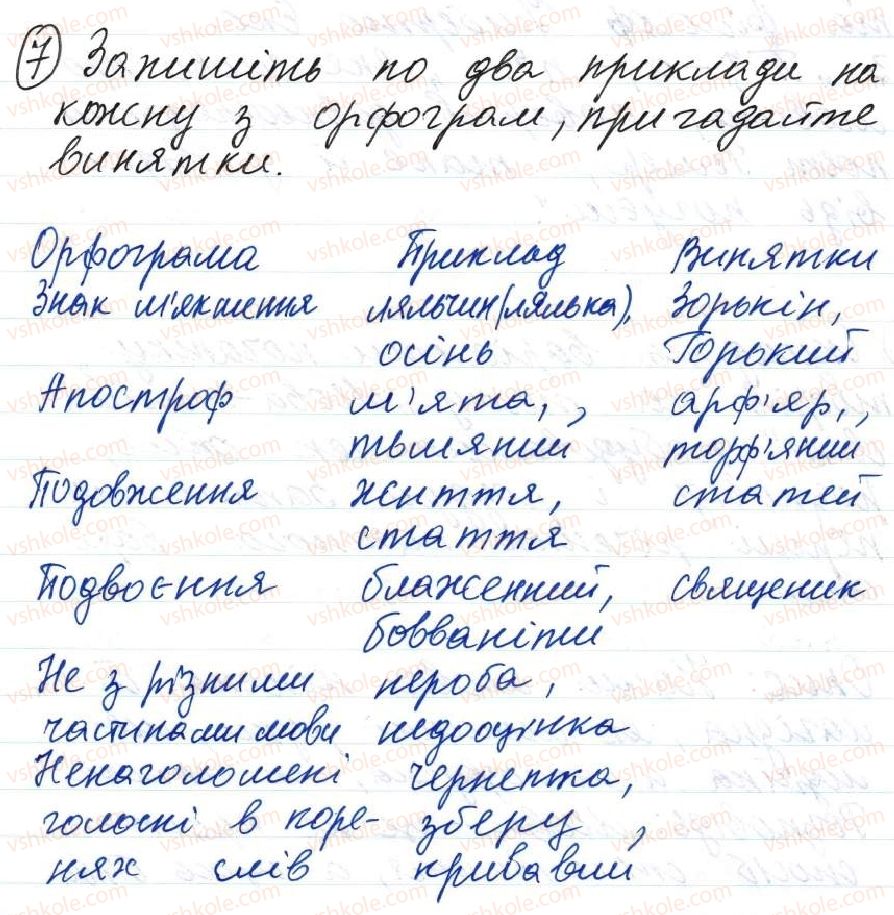 7 Запишіть по два приклади на
кожну з орфограм, пригадайте
винятки.
Орфограма Приклад Винятки
Знак м'якшення ляльчин (лялька), Зорькін,
осінь Горький
Апостроф м'ята, , арф'яр, ,
тьмяний торф'яний
Подовження життя, статей
стаття
Подвоєння блаженний, священик
бовваніти
Не з різними нероба,
частинами мови недооцінка
Ненаголошені чернетка,
голосні в коре- зберу ,
нях слів кривавий